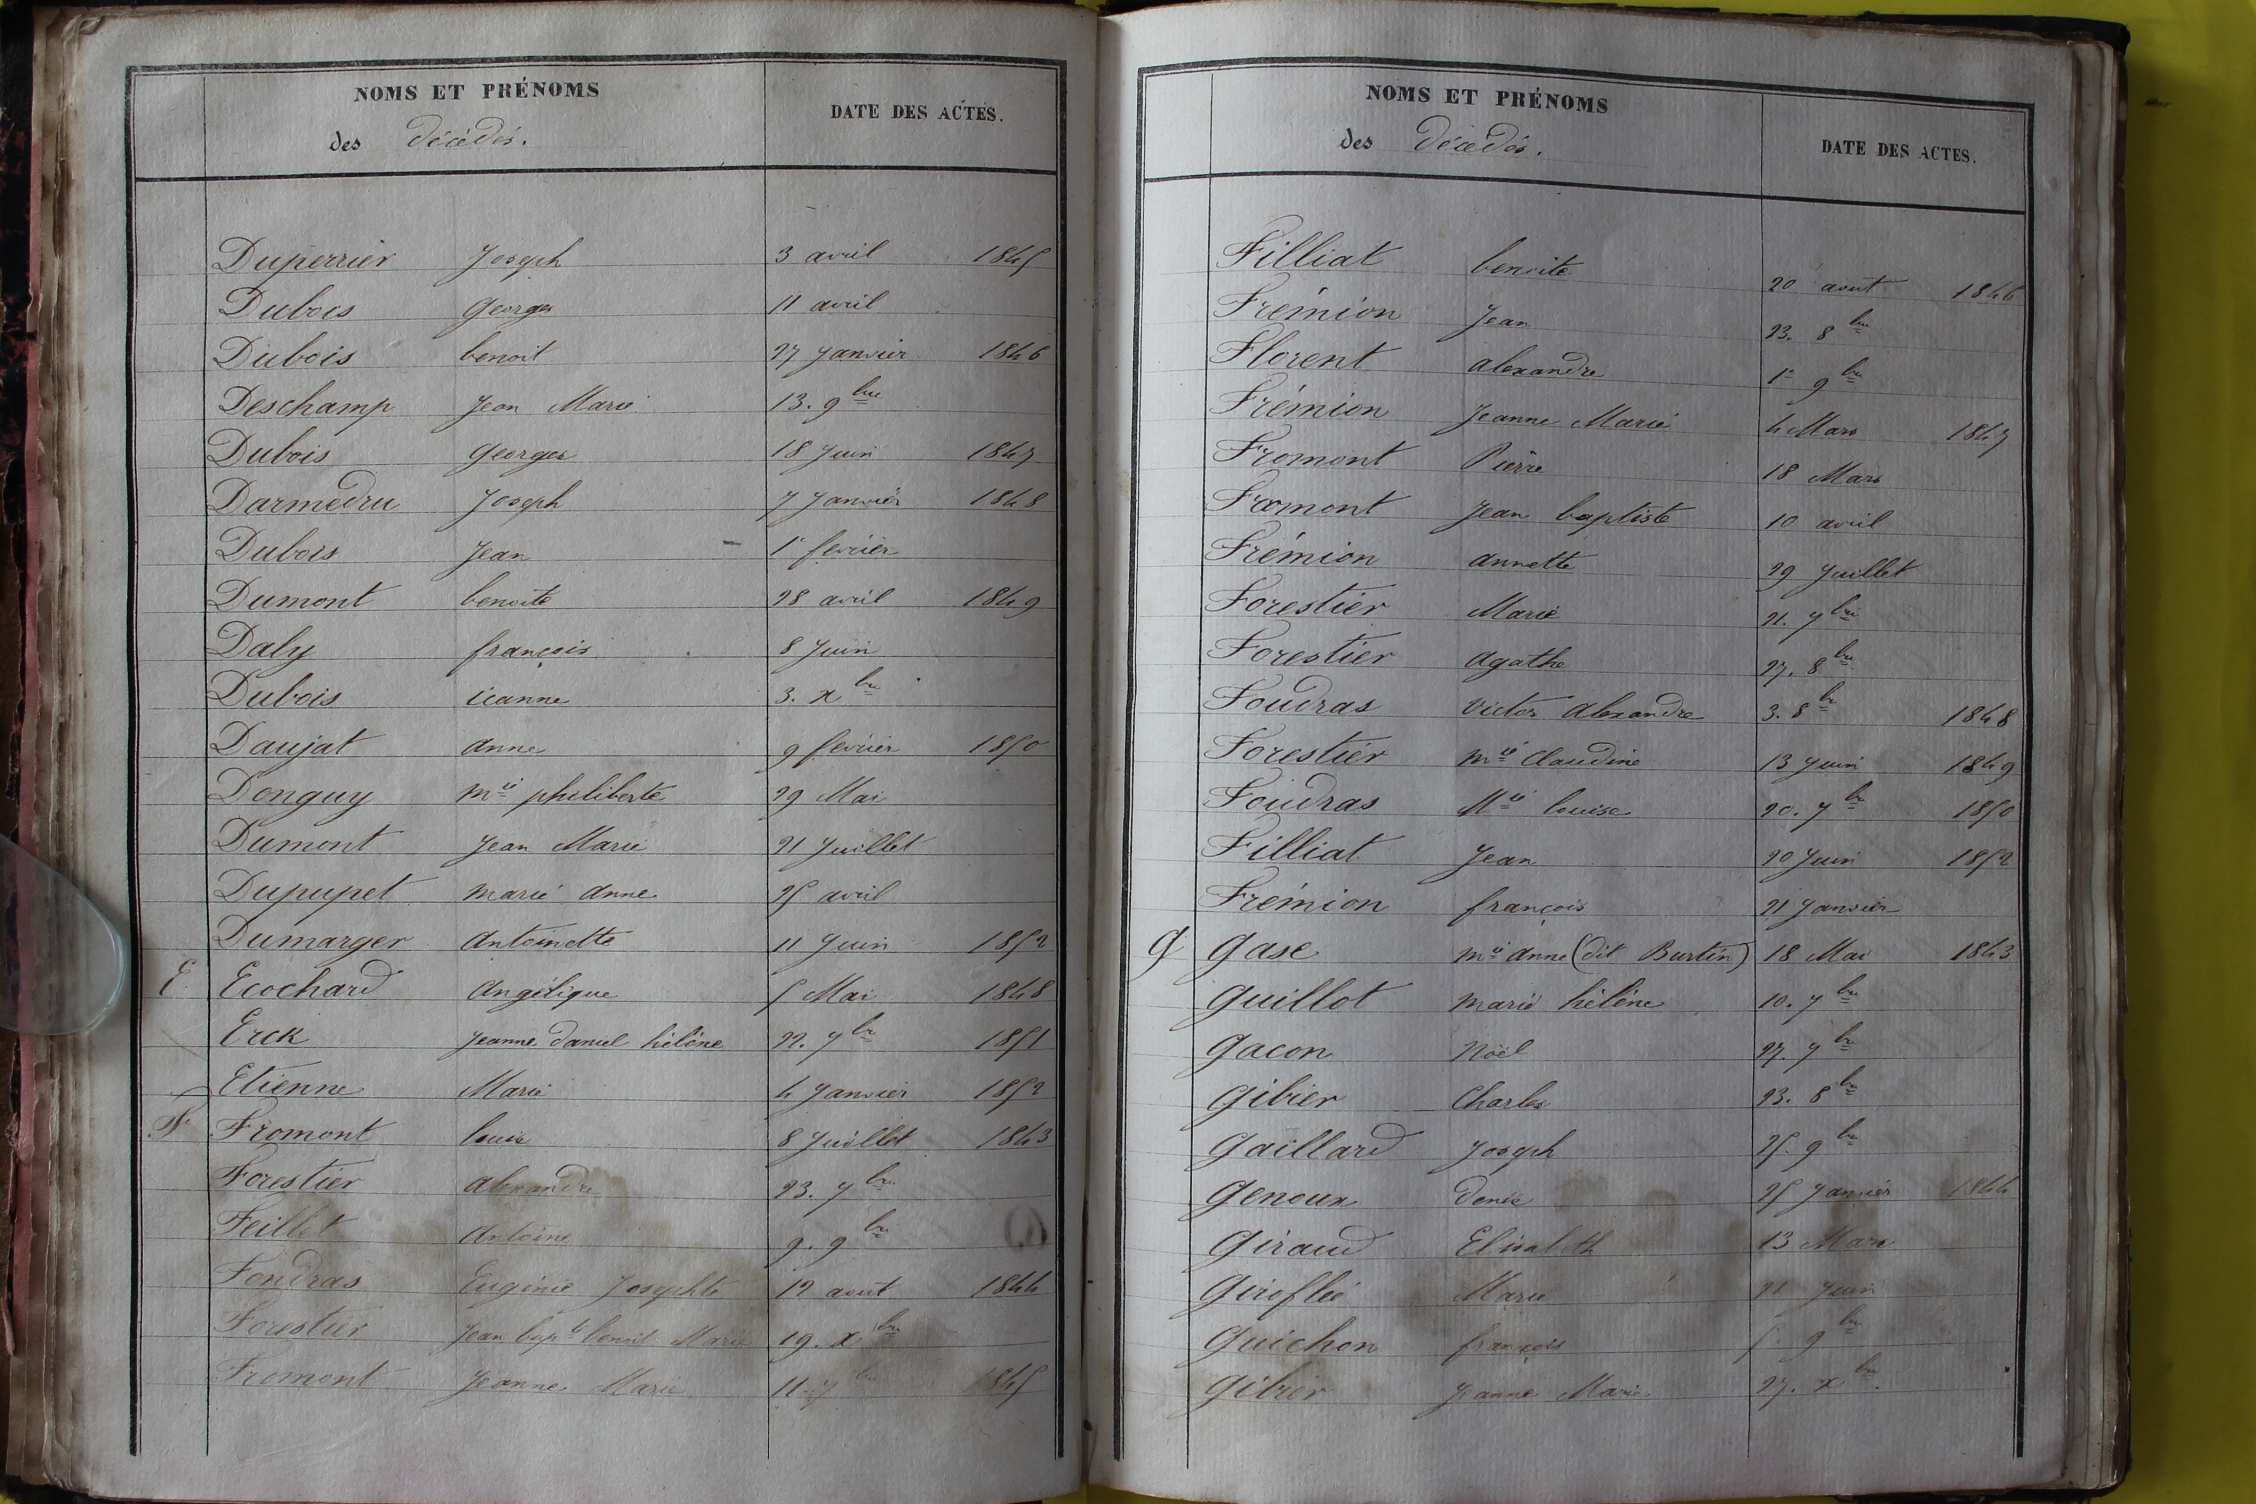 NOMS ET PRÉNOMS
des Décédés.
DATE DES ACTES.
Duperrier Joseph 3 avril 1845
Dubois georges 11 avril
Dubois benoit 27 Janvier 1846
Deschamp Jean Marie 13. 9bre
Dubois georges 18 Juin 1847
Darmedru Joseph 7 Janvier 1848
Dubois Jean 1er fevrier
Dumont benoite 28 avril 1849
Daly françois 8 Juin
Dubois jeanne 3. xbre
Daujat anne 9 fevrier 1850
Donguy mie philiberte 29 Mai
Dumont Jean Marie 21 Juillet
Dupupet marie anne 25 avril
Dumarger antoinette 11 Juin 1852
E. Ecochard angélique 5 Mai 1848
Erck Jeanne Daniel hélène 22. 7bre 1851
Etienne Marie 4 Janvier 1852
F Fromont louis 8 Juillet 1843
Forestier alexandre 23. 7bre
Feillet antoine 9. 9bre
Foudras Eugénie Josephte 12 aout 1844
Forestier Jean bapte benoit Marie 19. xbre
Fromont Jeanne Marie 11. 7bre 1845
NOMS ET PRÉNOMS
des Décédés.
DATE DES ACTES.
Filliat benoite 20 aout 1846
Frémion Jean 23. 8bre
Florent alexandre 1er 9bre
Frémion Jeanne Marie 4 Mars 1847
Fromont Pierre 18 Mars
Fromont Jean baptiste 10 avril
Frémion annette 29 Juillet
Forestier Marie 21. 7bre
Forestier agathe 27. 8bre
Foudras victor alexandre 3. 8bre 1848
Forestier mie Claudine 13 Juin 1849
Foudras Mie louise 20. 7bre 1850
Filliat Jean 20 Juin 1852
Frémion françois 21 Janvier
G Gase mie anne (dit Burtin) 18 Mai 1843
Guillot marie hélène 10. 7bre
Gacon Noël 27. 7bre
Gibier Charles 23. 8bre
Gaillard Joseph 25. 9bre
Genoux Denis 25 Janvier 1844
Giraud Elisabeth 13 Mars
Giroflée Marie 21 Juin
Guichon françois 5. 9bre
Gibier Jeanne Marie 27. xbre.